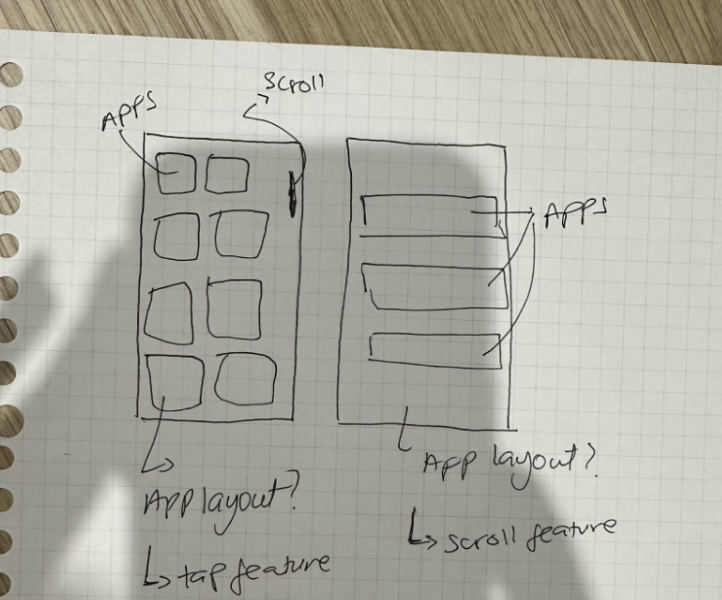 Scroll
APPS
APPS
App layout?
↳ tap feature
App layout?
↳ scroll feature